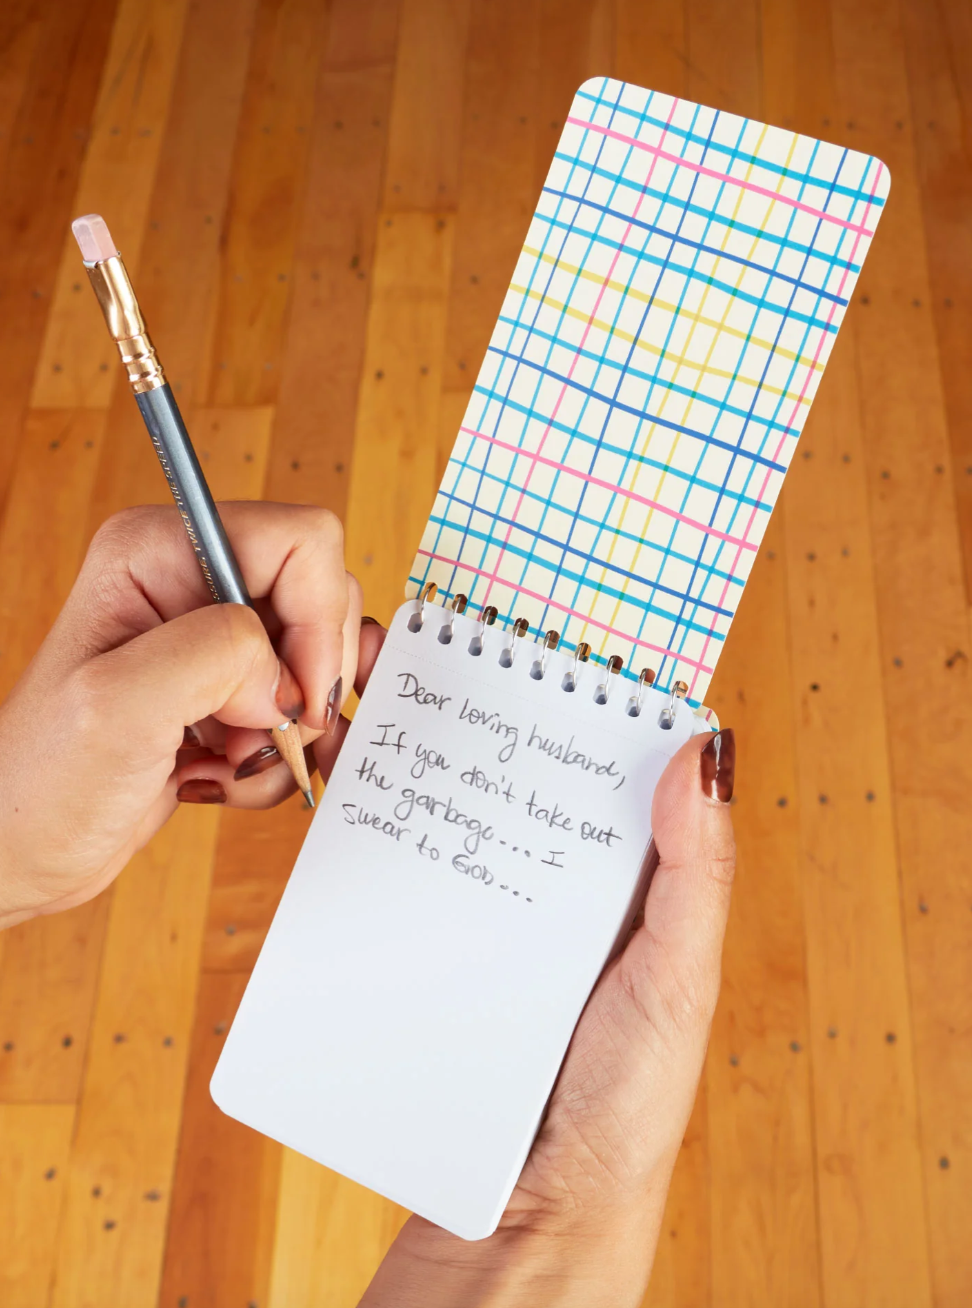 Dear loving husband,
If you don't take out
the garbage... I
swear to GOD....